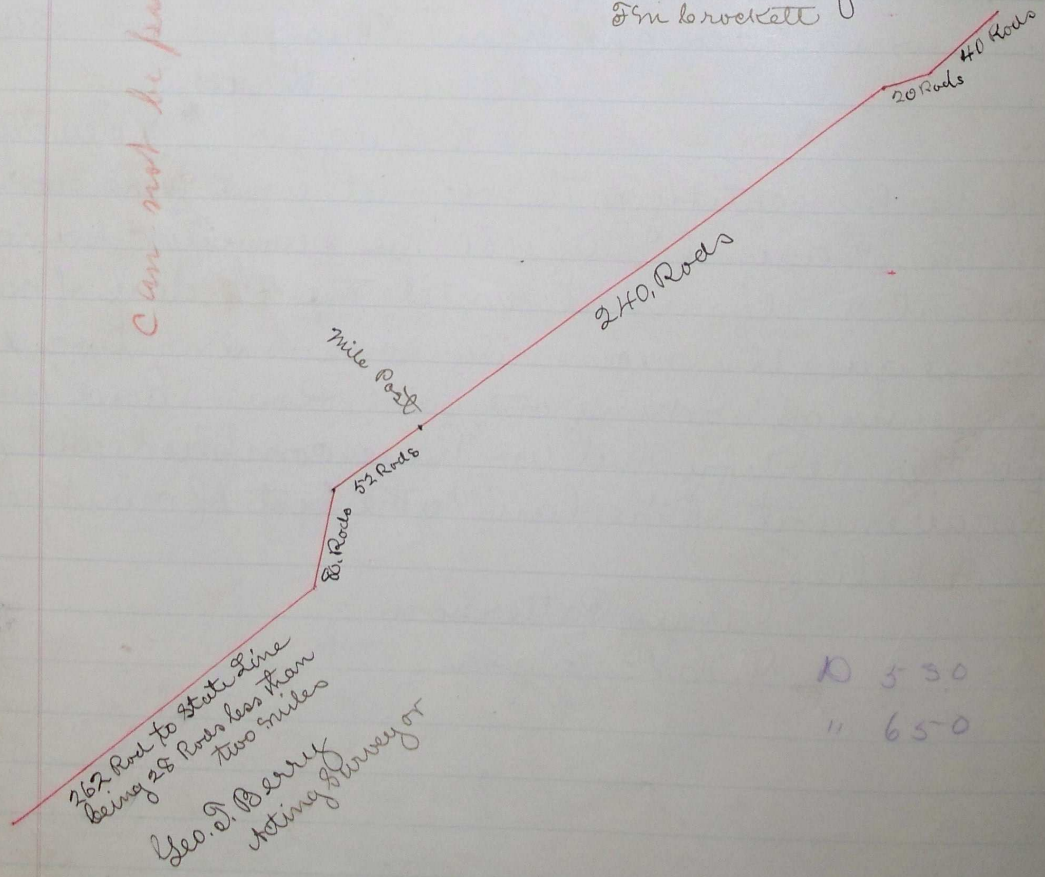 F M Crockett
40 Rods
20 Rods
Can not be
240, Rods
Mile Post
52 Rods
Rods
262 Rod to State Line
being 28 Rods less than
two miles
Geo. T. Berry
Acting Surveyor
D 550
" 650